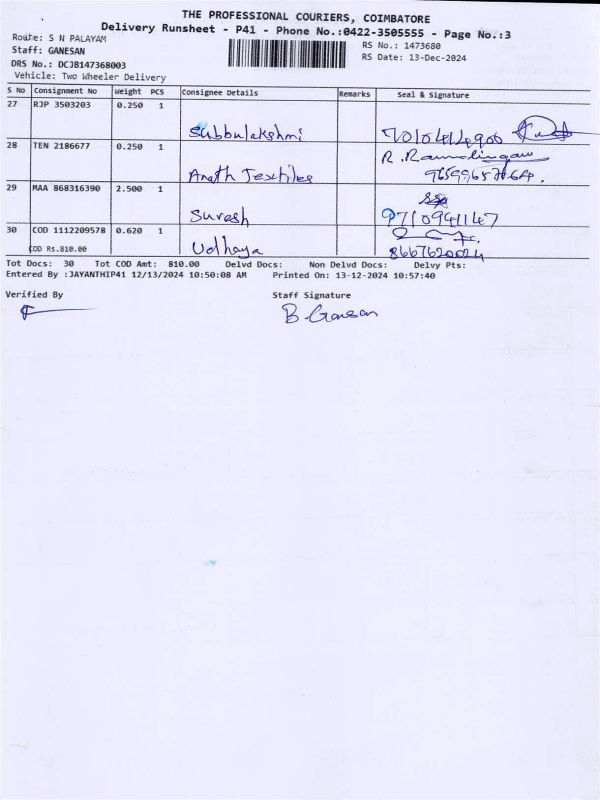 THE PROFESSIONAL COURIERS, COIMBATORE
Delivery Runsheet - P41 - Phone No.:0422-3505555 - Page No.:3
Route: S N PALAYAM
RS No.: 1473680
Staff: GANESAN
RS Date: 13-Dec-2024
DRS No.: DCJB147368003
Vehicle: Two Wheeler Delivery
S No Consignment No Weight PCS Consignee Details Remarks Seal & Signature
27 RJP 3503203 0.250 1
Subbulakshmi
28 TEN 2186677 0.250 1 R. Ramalingam
Textiles
29 MAA 868316390 2.500 1
Suresh 9710941147
30 COD 1112209578 0.620 1
COD Rs.810.00 Udhaya 8667620024
Tot Docs: 30 Tot COD Amt: 810.00 Delvd Docs: Non Delvd Docs: Delvy Pts:
Entered By :JAYANTHIP41 12/13/2024 10:50:08 AM Printed On: 13-12-2024 10:57:40
Verified By Staff Signature
B. Ganesan